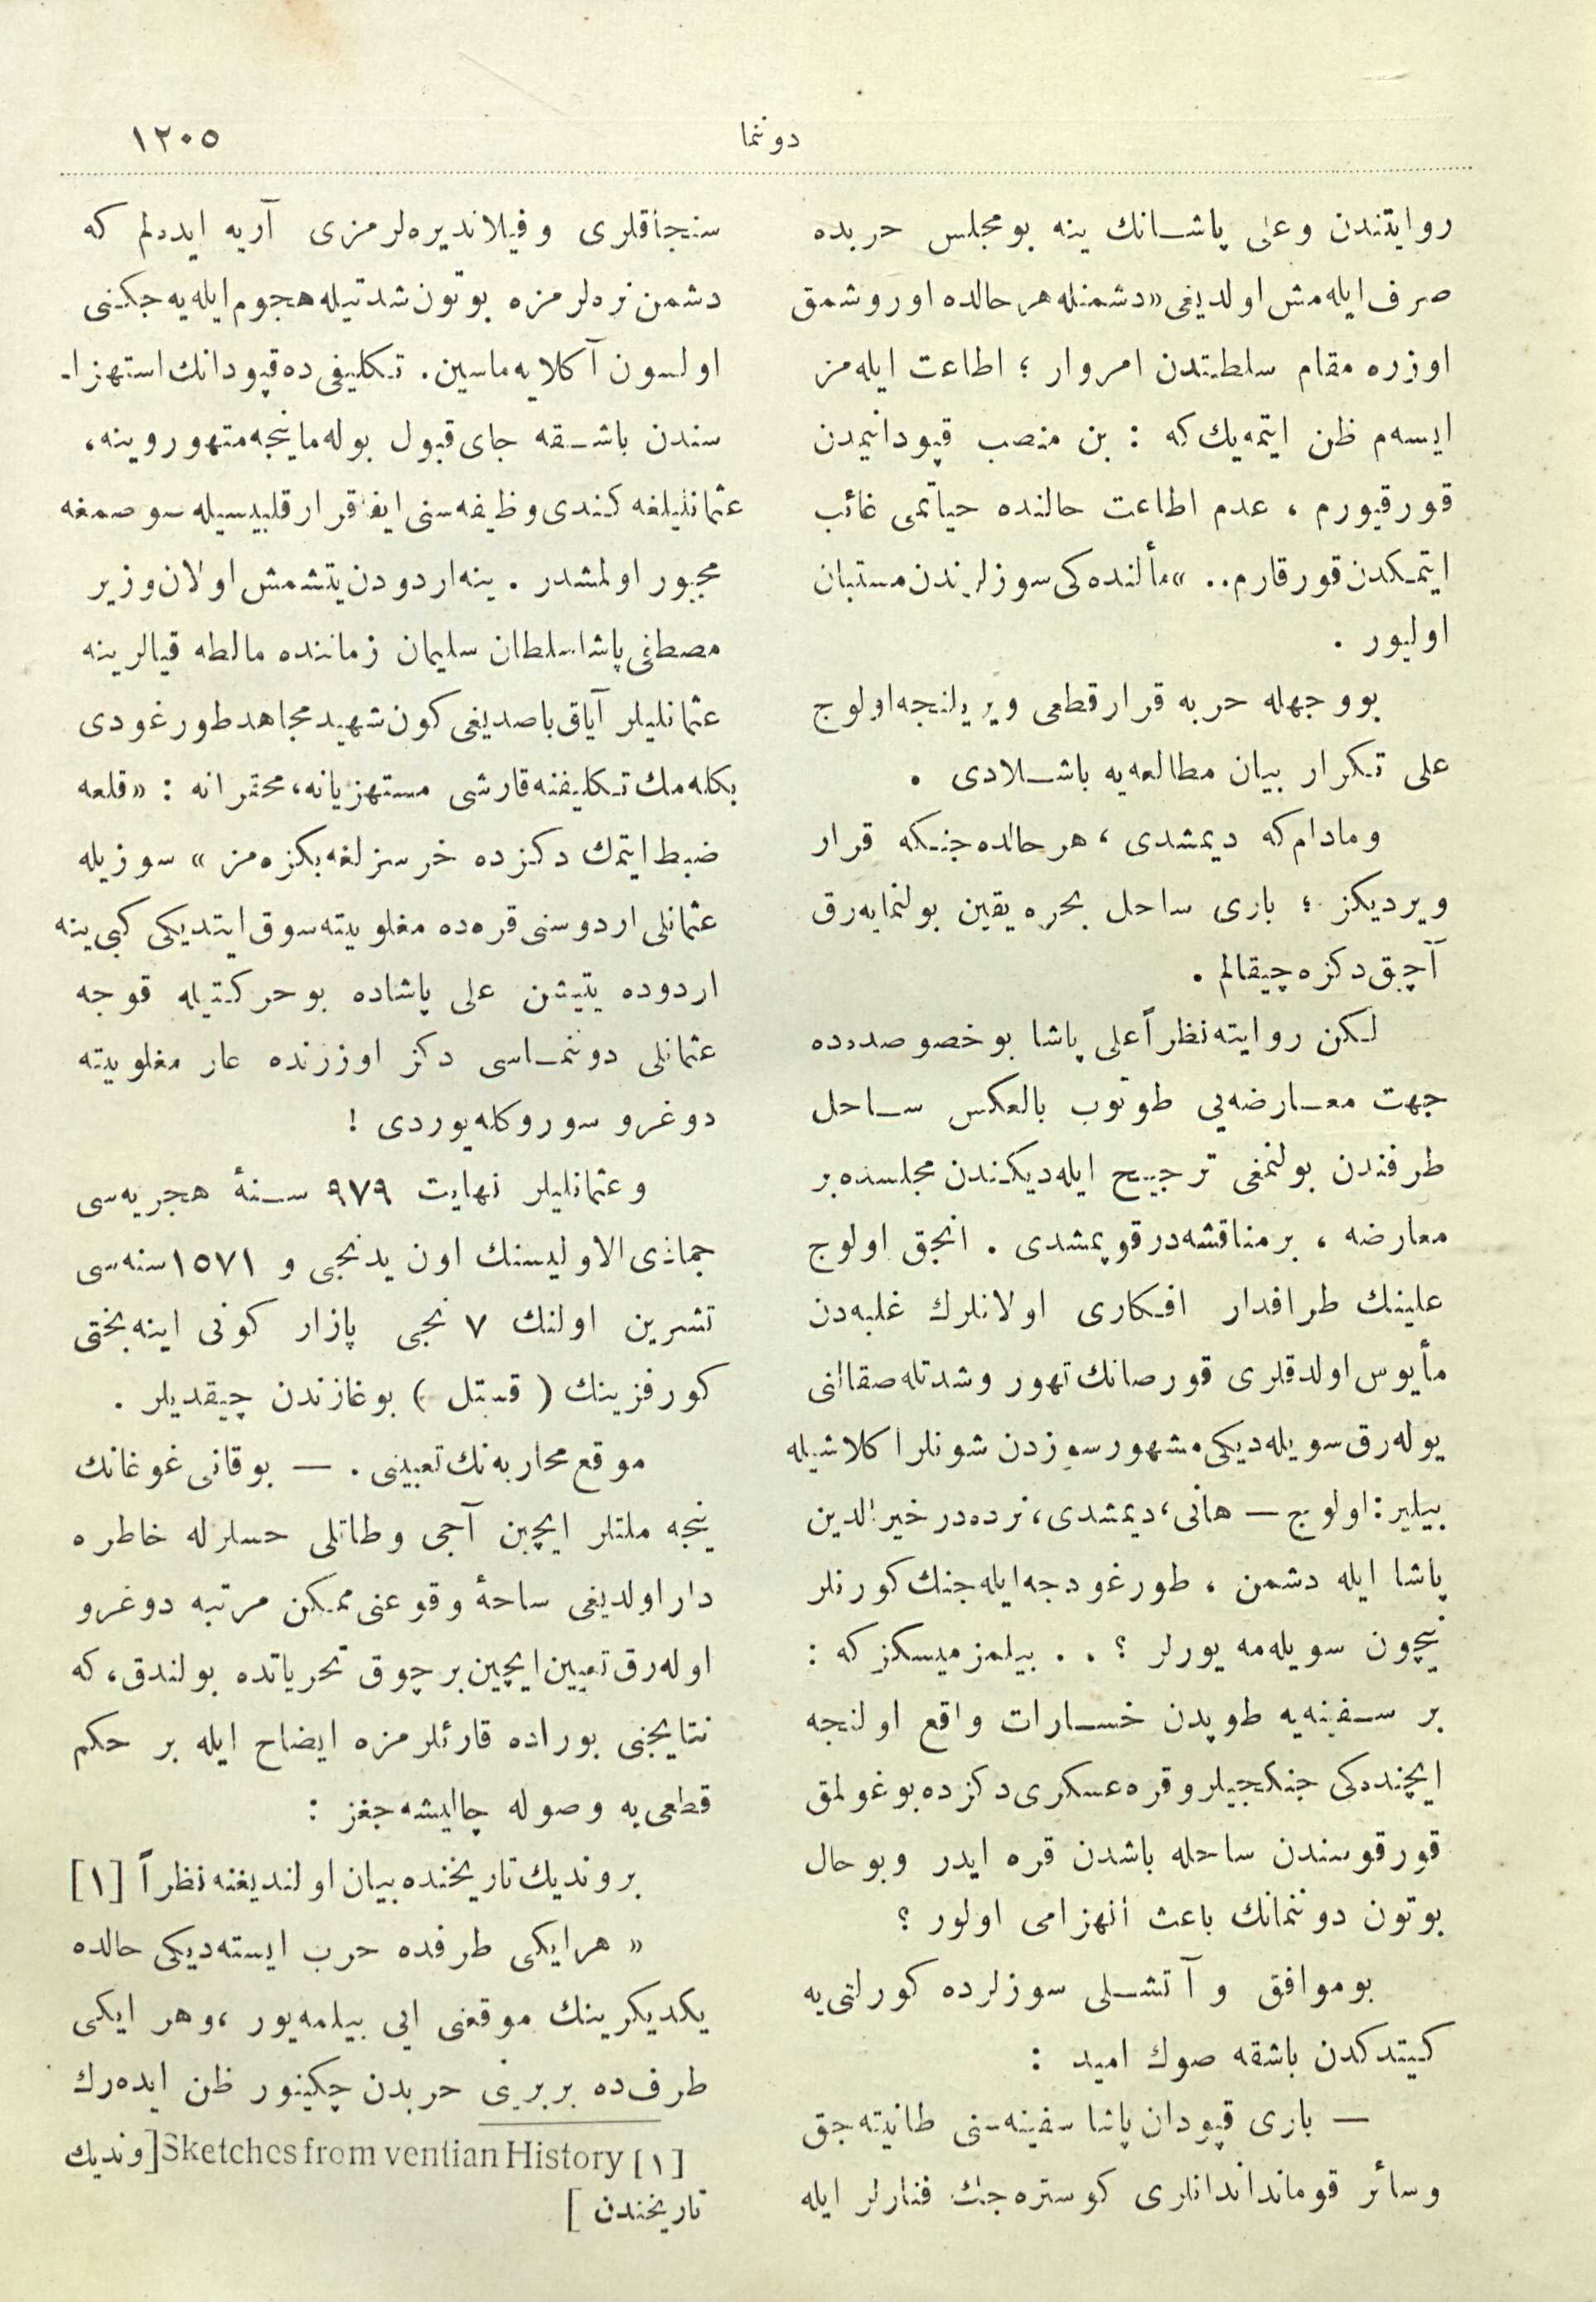 دوننما
١٢٠٥
روايتندن وعلى پاشانك ينه بومجلس حربده
صرف ايله‌مش اولديغى «دشمنله هر حالده اوروشمق
اوزره مقام سلطنتدن امروار ؛ اطاعت ايله‌مز
ايسه‌م ظن ايتمه‌يك كه : بن منصب قپودانيمدن
قورقيورم ، عدم اطاعت حالنده حياتمى غائب
ايتمكدن قورقارم..» مألنده‌كى سوزلرندن مستبان
اوليور .
بووجهله حربه قرار قطعى ويريلنجه اولوج
على تكرار بيان مطالعه‌يه باشلادى .
ومادام كه ديمشدى ، هر حالده جنكه قرار
ويرديكز ؛ بارى ساحل بحره يقين بولنمايه‌رق
آچيق دكزه چيقالم .
لكن روايته نظراً على پاشا بوخصوصدده
جهت معارضه‌يى طوتوب بالعكس ساحل
طرفندن بولنمغى ترجيح ايله‌ديكندن مجلسده بر
معارضه ، برمناقشه‌در قوپمشدى . انجق اولوج
علينك طرافدار افكارى اولانلرك غلبه‌دن
مأيوس اولدقلرى قورصانك تهور وشدتله صقالنى
يوله‌رق سويله‌ديكى مشهور سوزدن شونلر اكلاشيله
بيلير : اولوج — هانى ، ديمشدى ، نرده‌در خيرالدين
پاشا ايله دشمن ، طورغودجه ايله جنك كورنلر
نيچون سويله‌مه يورلر ؟ . . بيلمزميسكز كه :
بر سفينه‌يه طوپدن خسارات واقع اولنجه
ايچنده‌كى جنكجيلر وقره عسكرى دكزده بوغولمق
قورقوسندن ساحله باشدن قره ايدر وبوحال
بوتون دوننمانك باعث انهزامى اولور ؟
بوموافق و آتشلى سوزلرده كورلتى‌يه
كيتدكدن باشقه صوك اميد :
— بارى قپودان پاشا سفينه‌سنى طانيته‌جق
وسائر قوماندانلرى كوستره‌جك فنارلر ايله
سنجاقلرى وفيلانديره‌لرمزى آريه ايده‌لم كه
دشمن نره‌لرمزه بوتون شدتيله هجوم ايله‌يه‌جكنى
اولسون آكلايه‌ماسين . تكليفى ده قپودانك استهزا-
سندن باشقه جاى قبول بوله‌ماينجه متهوروينه،
عثمانليلغه كندى وظيفه‌سنى ايفا قرار قلبيسيله سوصمغه
مجبور اولمشدر . ينه اردودن يتشمش اولان وزير
مصطفى پاشا سلطان سليمان زماننده مالطه قيالرينه
عثمانليلر آياق باصديغى كون شهيد مجاهد طورغودى
بكله‌مك تكليفنه قارشى مستهزيانه، محقرانه : «قلعه
ضبط ايتمك دكزده خرسزلغه بكزه‌مز» سوزيله
عثمانلى اردوسنى قره‌ده مغلوبيته سوق ايتديكى كبى ينه
اردوده يتيشن على پاشاده بوحركتيله قوجه
عثمانلى دوننماسى دكز اوزرنده عار مغلوبيته
دوغرو سوروكله‌يوردى !
وعثمانليلر نهايت ٩٧٩ سنۀ هجريه‌سى
جماذى الاوليسنك اون يدنجى و ١٥٧١ سنه‌سى
تشرين اولنك ٧ نجى پازار كونى اينه‌بختى
كورفزينك ( قستل ) بوغازندن چيقديلر .
موقع محاربه‌نك تعيينى . — بوقانى غوغانك
نيجه ملتلر ايچين آجى وطاتلى حسلرله خاطره
دار اولديغى ساحۀ وقوعنى ممكن مرتبه دوغرو
اوله‌رق تعيين ايچين برچوق تحرياتده بولندق، كه
نتايجنى بوراده قارئلرمزه ايضاح ايله بر حكم
قطعى‌يه وصوله چاليشه‌جغز :
بروندیك تاريخنده بيان اولنديغنه نظراً [١]
« هرايكى طرفده حرب ايسته‌ديكى حالده
يكديكرينك موقعنى ايى بيلمه‌يور ، وهر ايكى
طرف‌ده بربرينى حربدن چكينور ظن ايده‌رك
[١] Sketches from ventian History [ونديك
تاريخندن ]